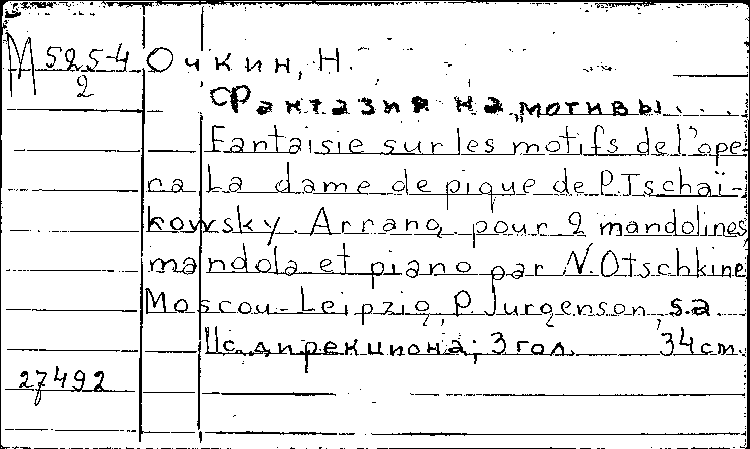 М 525-4 Очкин, Н.
2
Фантазия на мотивы...
Fantaisie sur les motifs de l'ope-
ra La dame de pique de P. Tschaï-
kowsky. Arrang. pour 2 mandolines,
mandola et piano par N. Otschkine
Moscou-Leipzig, P. Jurgenson, s.a.
11с. дирекциона; 3 гол. 34 cm.
27492